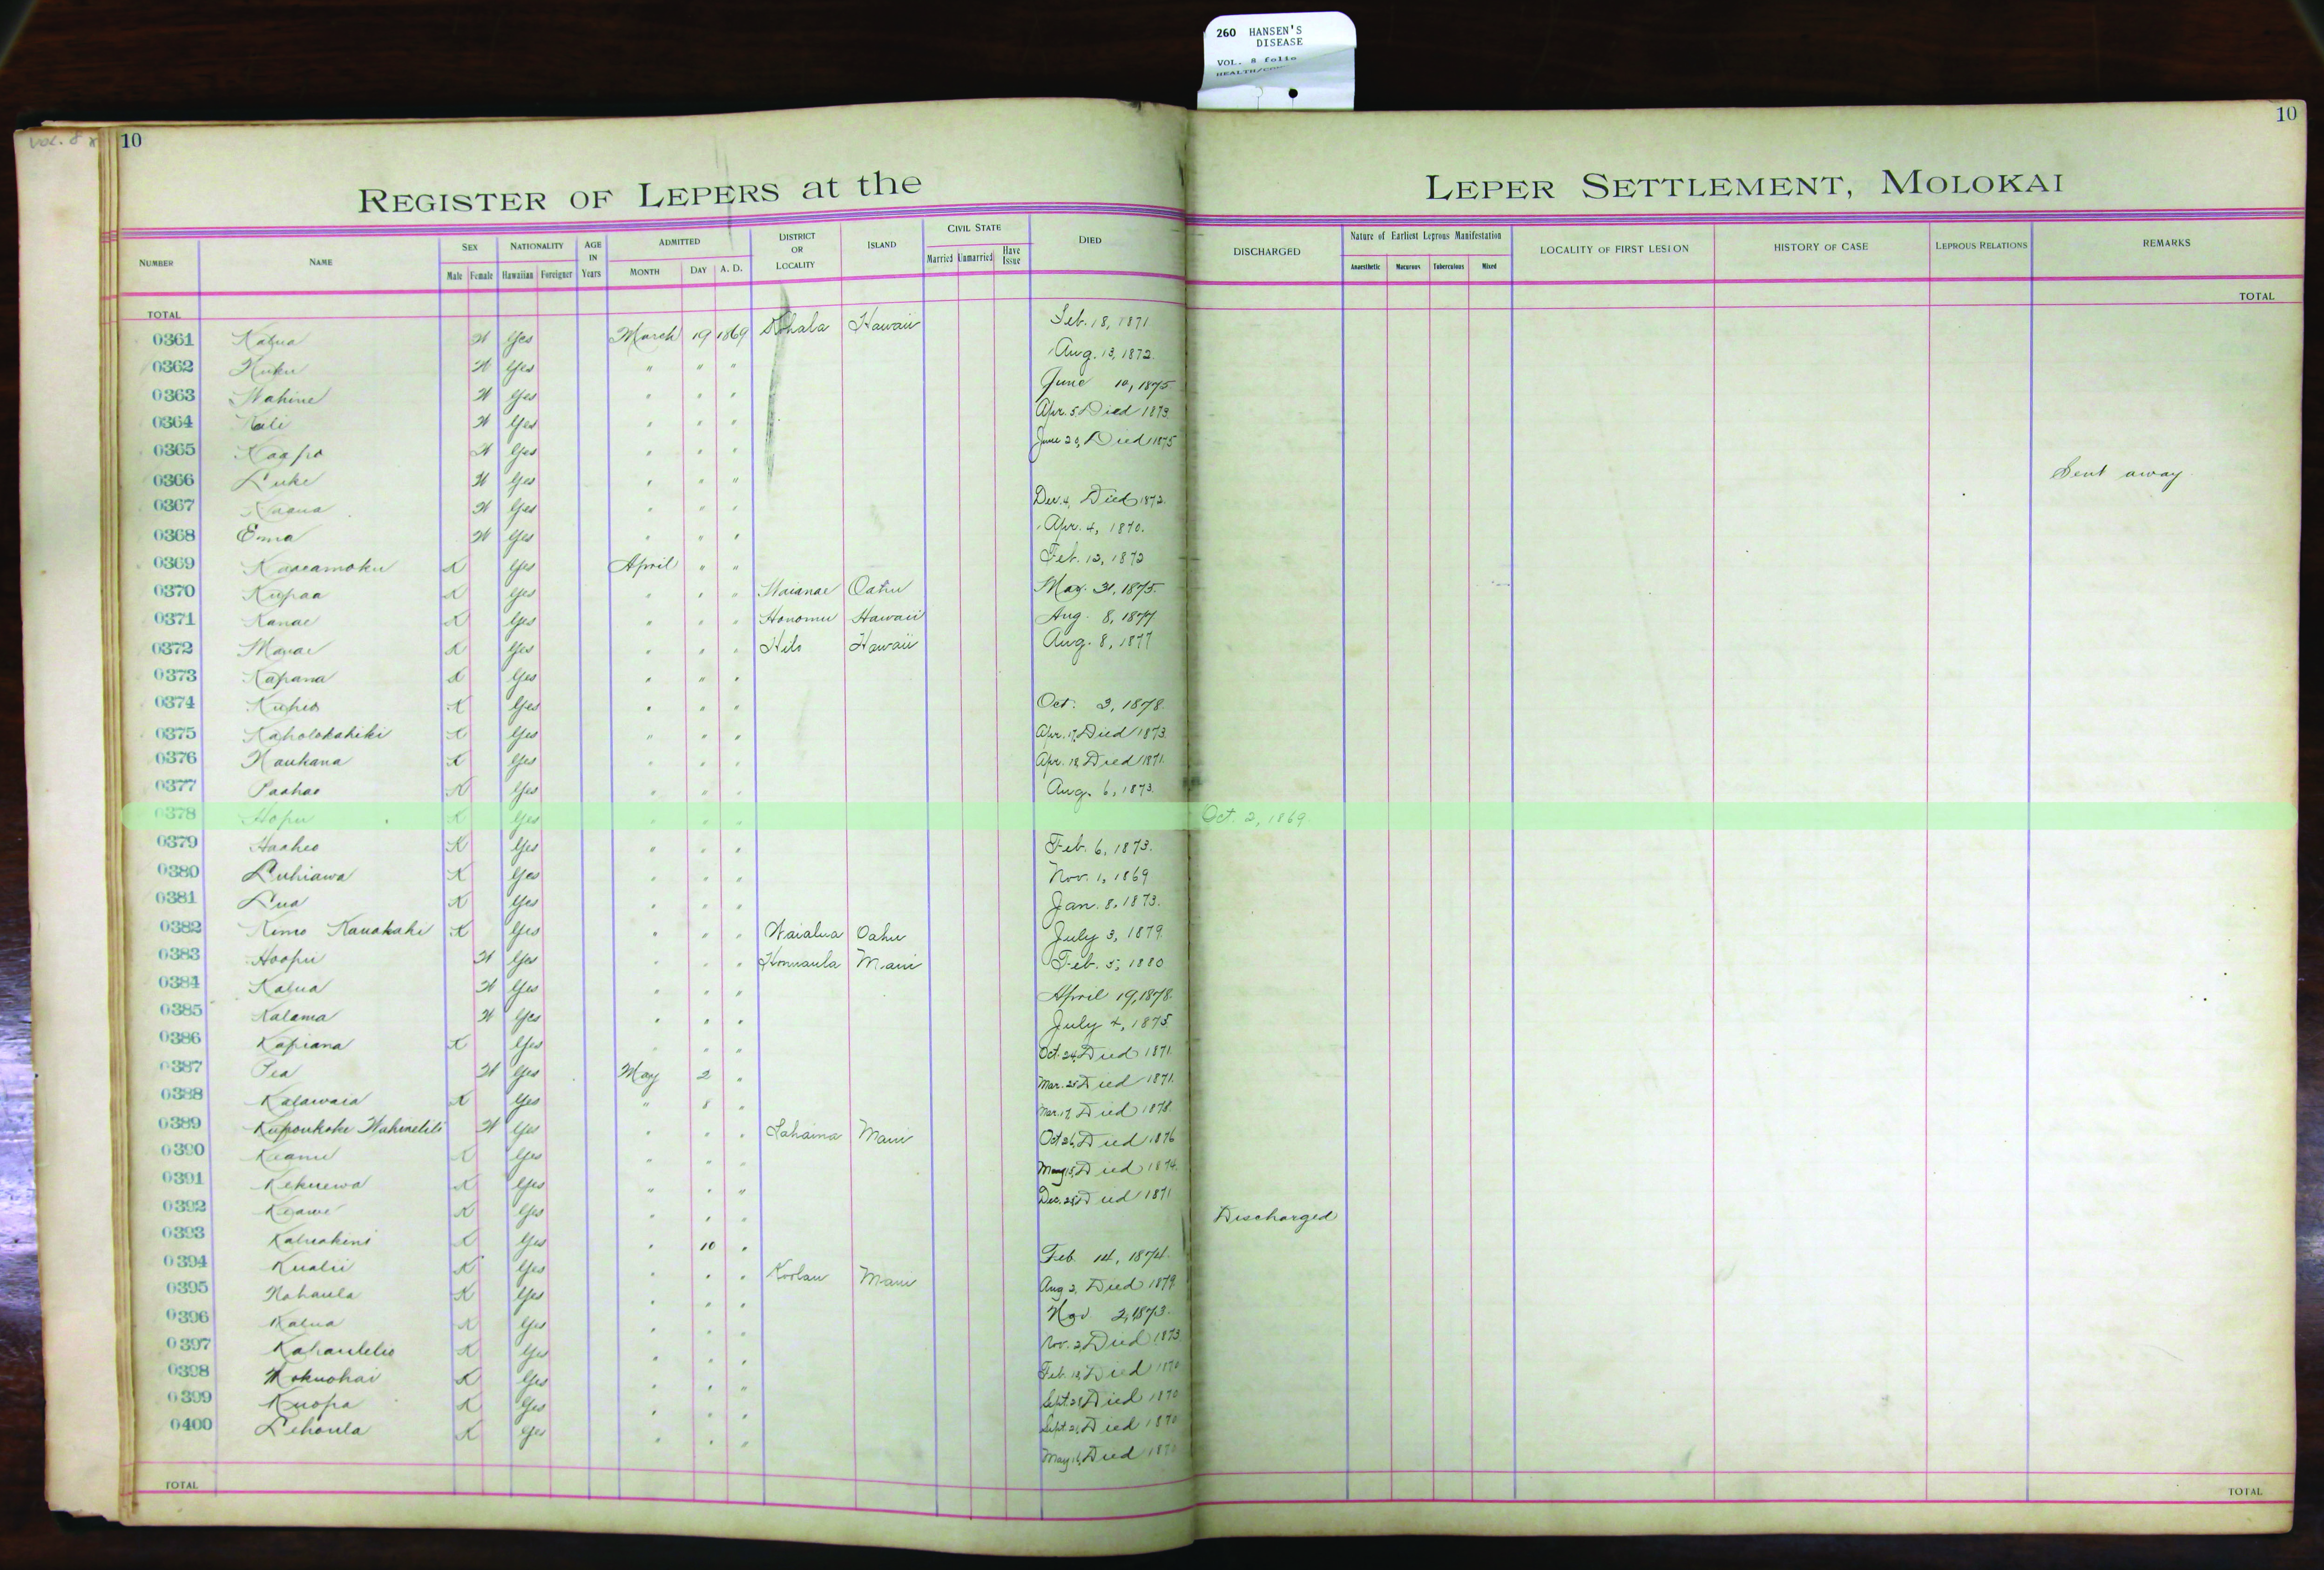 260 HANSEN'S
DISEASE
VOL. 8 folio
VOL. 8
10
10
REGISTER OF LEPERS at the LEPER SETTLEMENT, MOLOKAI
NUMBER NAME SEX NATIONALITY AGE IN Years ADMITTED DISTRICT OR LOCALITY ISLAND CIVIL STATE DIED DISCHARGED Nature of Earliest Leprous Manifestation LOCALITY OF FIRST LESION HISTORY OF CASE LEPROUS RELATIONS REMARKS
Male Female Hawaiian Foreigner MONTH DAY A. D. Married Unmarried Have Issue Anaesthetic Macurous Tuberculous Mixed
TOTAL TOTAL
0361 Kalua W Yes March 19 1869 Kohala Hawaii Feb. 18, 1871
0362 Kuku W Yes " " " Aug. 13, 1872.
0363 Wahine W Yes " " " June 10, 1875
0364 Kali W Yes " " " Apr. 5 Died 1873.
0365 Kaapo W Yes " " " June 20, Died 1875
0366 Luke W Yes " " " Sent away
0367 W Yes " " " Dec. 4, Died 1872.
0368 Emma W Yes " " " Apr. 4, 1870.
0369 Kaaeamoku K Yes April " " Feb. 12, 1872
0370 Kupaa K Yes " " " Waianae Oahu May. 31, 1875.
0371 Kanae K Yes " " " Honomu Hawaii Aug. 8, 1877
0372 K Yes " " " Hilo Hawaii Aug. 8, 1877
0373 Kapana K Yes " " "
0374 Kuheo K Yes " " " Oct. 3, 1878.
0375 Kaholokahiki K Yes " " " Apr. 17, Died 1873.
0376 Naukana K Yes " " " Apr. 18 Died 1871.
0377 Paahao K Yes " " " Aug. 6, 1873.
0378 Hopu K Yes " " " Oct. 2, 1869
0379 Haaheo K Yes " " " Feb. 6, 1873.
0380 Luhiawa K Yes " " " Nov. 1, 1869
0381 Lua K Yes " " " Jan. 8, 1873.
0382 Kimo Kauakahi K Yes " " " Waialua Oahu July 3, 1879.
0383 Hoopii W Yes " " " Honuaula Maui Feb. 5, 1880
0384 Kalua W Yes " " " April 19, 1878.
0385 Kalama W Yes " " " July 4, 1875
0386 Kapiana K Yes " " " Oct. 24, Died 1871.
0387 Pea W Yes May 2 " Mar. 25 Died 1871.
0388 Kalawaia K Yes " 8 " Mar. 17, Died 1878.
0389 W Yes " " " Lahaina Maui Oct 26, Died 1876
0390 Keanu K Yes " " " May 15, Died 1874.
0391 Kekuewa K Yes " " " Dec. Died 1871
0392 Keawe K Yes " " " Discharged
0393 Kaluakini K Yes " 10 " Feb. 14, 1874.
0394 Kualii K Yes " " " Koolau Maui Aug 2, Died 1879.
0395 Nahaula K Yes " " " Nov 2, 1873.
0396 Kalua K Yes " " " Nov. 2, Died 1873
0397 Kahaulelio K Yes " " " Feb. 18, Died 1870
0398 Mokuohai K Yes " " " Sept. Died 1870
0399 Kuopa K Yes " " " Sept. Died 1870
0400 Lehoula K Yes " " " May 16, Died 1870
TOTAL TOTAL